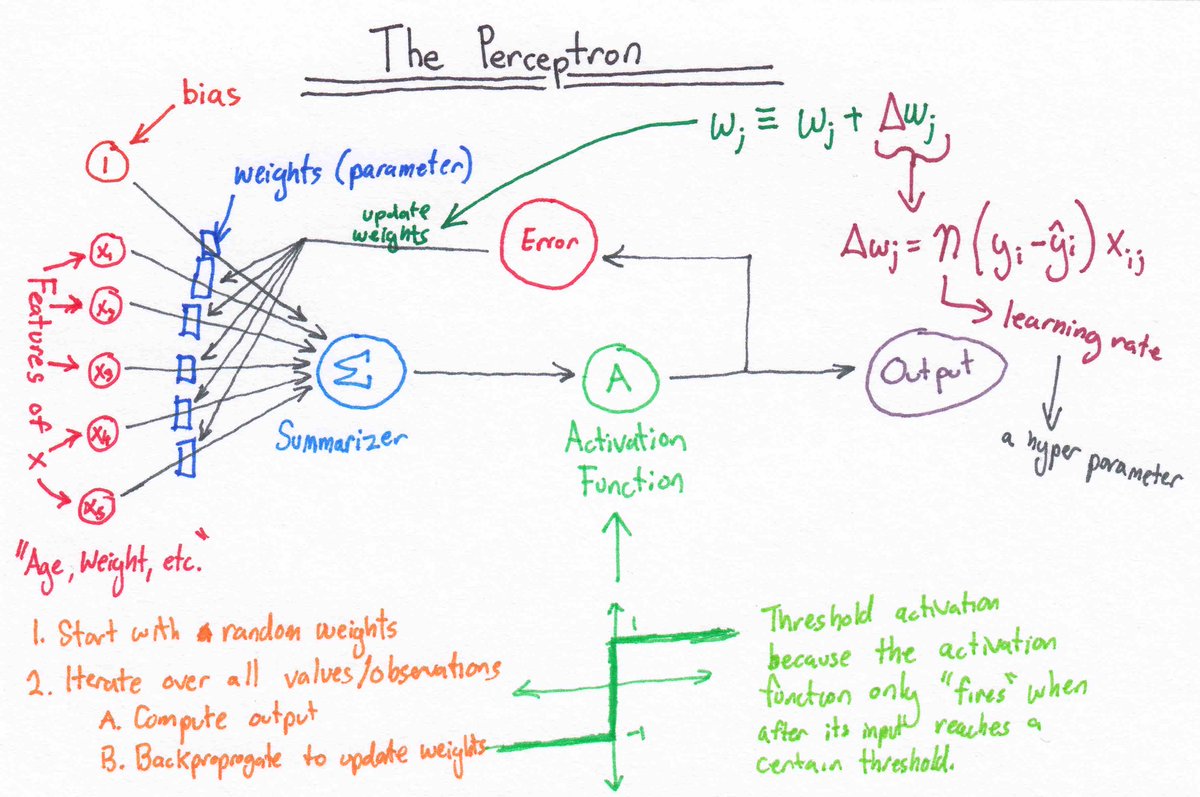 The Perceptron
bias
1
weights (parameter)
update
weights
Error
wⱼ ≡ wⱼ + Δwⱼ
Δwⱼ = η (yᵢ - ŷᵢ) xᵢⱼ
learning rate
a hyper parameter
Features of x
x₁
x₂
x₃
x₄
x₅
"Age, Weight, etc."
Σ
Summarizer
A
Activation
Function
Output
1. Start with random weights
2. Iterate over all values/observations
A. Compute output
B. Backpropogate to update weights
1
-1
Threshold activation
because the activation
function only "fires" when
after its input reaches a
certain threshold.